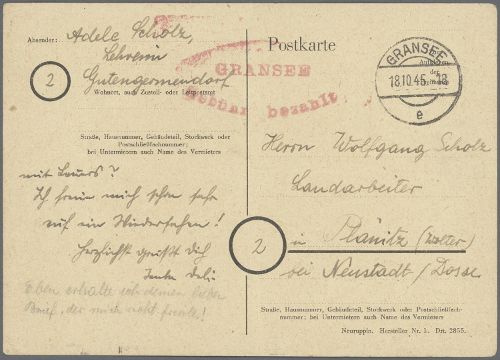 Absender: Adele Scholz,
Lehrerin
2
Gutengermendorf
Wohnort, auch Zustell- oder Leitpostamt
Straße, Hausnummer, Gebäudeteil, Stockwerk oder
Postschließfachnummer;
bei Untermietern auch Name des Vermieters
mit
Ich freue mich schon sehr
auf ein Wiedersehen!
Herzlichst grüßt Dich
Tante Deli
Eben erhalte ich deinen lieben
Brief, der mich sehr freute!
Postkarte
GRANSEE
Gebühr bezahlt
GRANSEE
18.10.45
e
Herrn Wolfgang Scholz
Landarbeiter
2
in Plänitz
bei Neustadt/Dosse
Straße, Hausnummer, Gebäudeteil, Stockwerk oder Postschließfach-
nummer; bei Untermietern auch Name des Vermieters
Neuruppin. Hersteller Nr. 1. Drt. 2855.